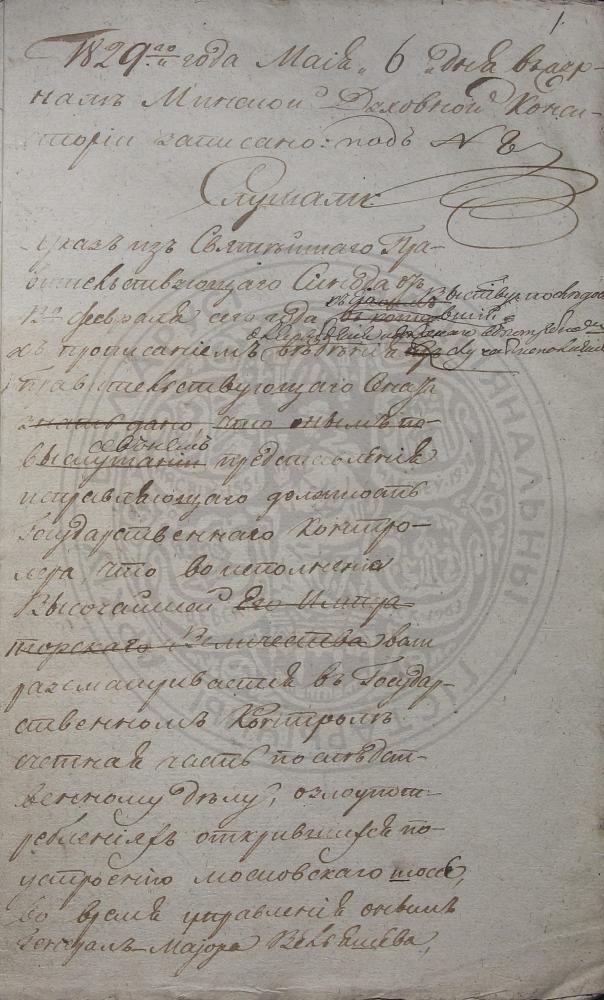 1.
1829го года Маія 6 дня въ жур-
налѣ Минской Духовной Конси-
сторіи записано: подъ №
Слушали
указъ изъ Святѣйшаго Пра-
вительствующаго Сѵнода отъ
февраля сего года
съ прописаніемъ вѣденія
Правительствующаго Сената
знать дано, что онымъ по
выслушаніи представленія
исправляющаго должность
Государственнаго Контро-
лера, что во исполненіе
Высочайшей Его Импера
торскаго Величества воли
разсматривается въ Государ-
ственномъ Контролѣ
счетная часть по слѣдст-
венному дѣлу, о злоупот-
ребленіяхъ открывшихся по
устроенію московскаго шоссе,
во время управленія онымъ
Генералъ-Маіора
ГІСТАРЫЧНЫ